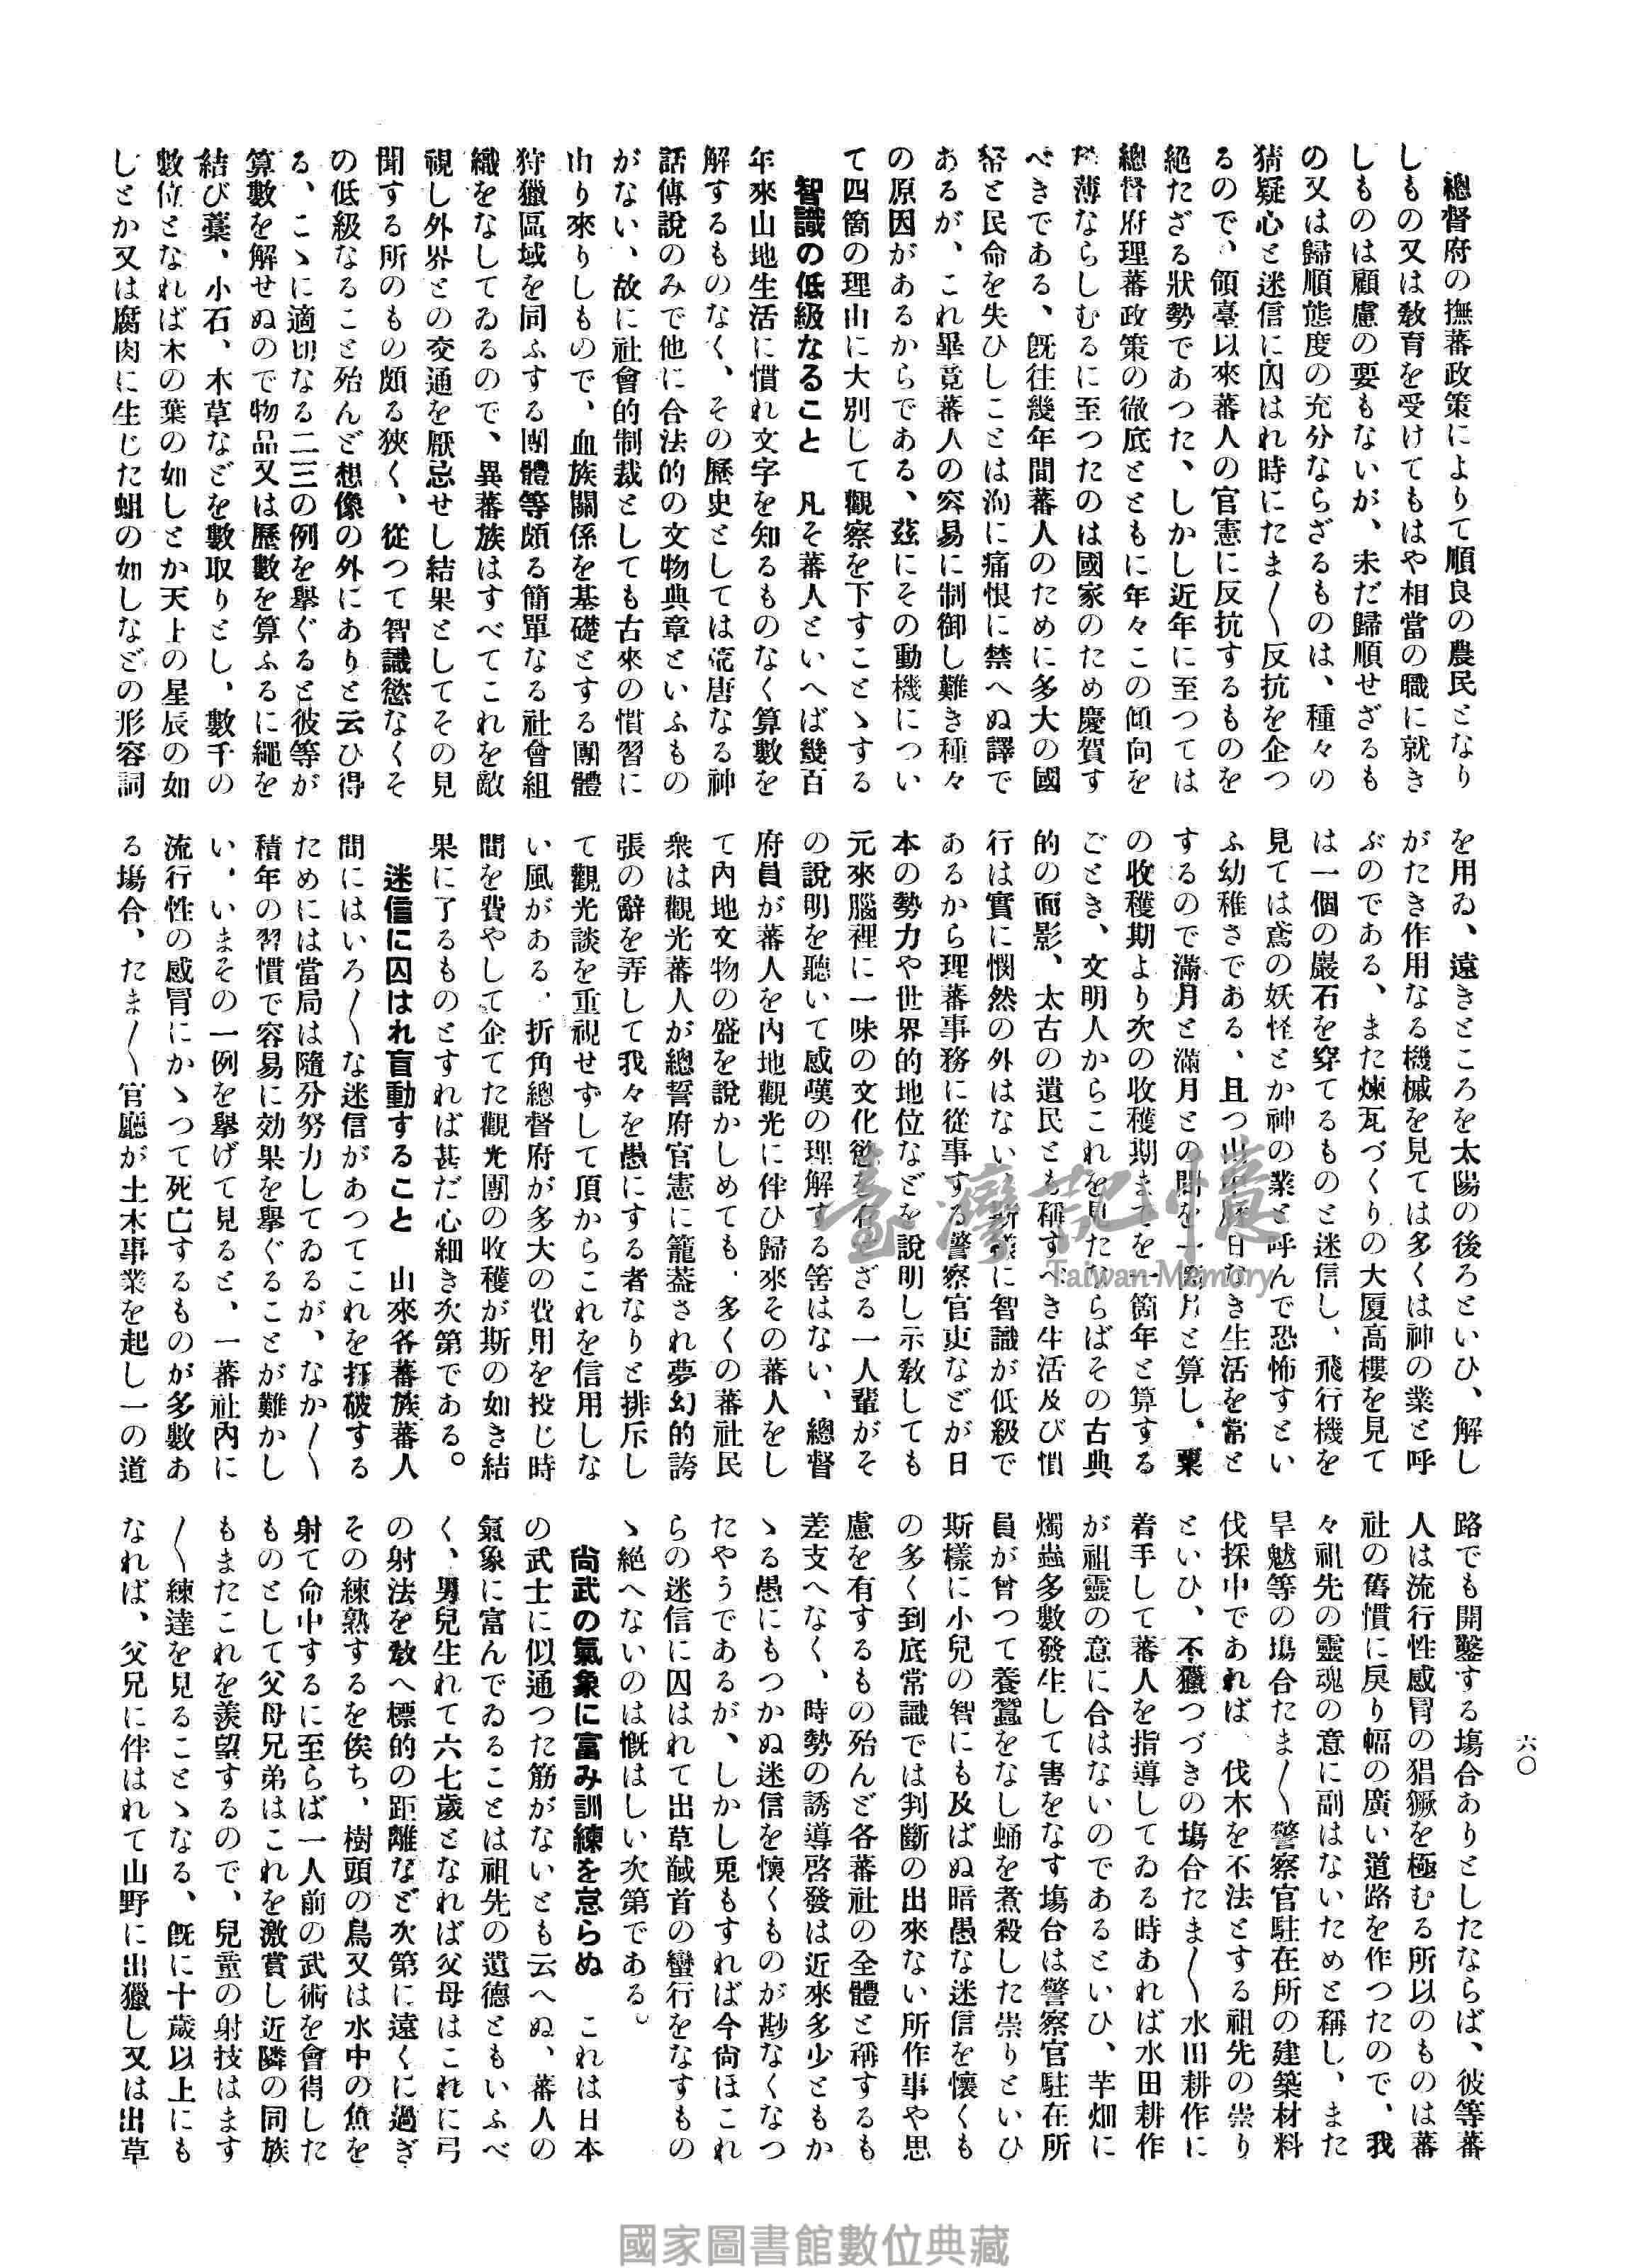 總督府の撫蕃政策によりて順良の農民となり
しもの又は敎育を受けてもはや相當の職に就き
しものは顧慮の要もないが、未だ歸順せざるも
の又は歸順態度の充分ならざるものは、種々の
猜疑心と迷信に囚はれ時にたま〱反抗を企つ
るので、領臺以來蕃人の官憲に反抗するものを
絕たざる狀勢であつた、しかし近年に至つては
總督府理蕃政策の徹底とともに年々この傾向を
稀薄ならしむるに至つたのは國家のため慶賀す
べきである、旣往幾年間蕃人のために多大の國
帑と民命を失ひしことは洵に痛恨に禁へぬ譯で
あるが、これ畢竟蕃人の容易に制御し難き種々
の原因があるからである、茲にその動機につい
て四箇の理由に大別して觀察を下すことゝする
智識の低級なること 凡そ蕃人といへば幾百
年來山地生活に慣れ文字を知るものなく算數を
解するものなく、その歷史としては荒唐なる神
話傳說のみで他に合法的の文物典章といふもの
がない、故に社會的制裁としても古來の慣習に
由り來りしもので、血族關係を基礎とする團體
狩獵區域を同ふする團體等頗る簡單なる社會組
織をなしてゐるので、異蕃族はすべてこれを敵
視し外界との交通を厭忌せし結果としてその見
聞する所のもの頗る狹く、從つて智識慾なくそ
の低級なること殆んど想像の外にありと云ひ得
る、こゝに適切なる二三の例を擧ぐると彼等が
算數を解せぬので物品又は歷數を算ふるに繩を
結び藁、小石、木草などを數取りとし、數千の
數位となれば木の葉の如しとか天上の星辰の如
しとか又は腐肉に生じた蛆の如しなどの形容詞
を用ゐ、遠きところを太陽の後ろといひ、解し
がたき作用なる機械を見ては多くは神の業と呼
ぶのである、また煉瓦づくりの大廈高樓を見て
は一個の巖石を穿てるものと迷信し、飛行機を
見ては鳶の妖怪とか神の業と呼んで恐怖すとい
ふ幼稚さである、且つ山中曆日なき生活を常と
するので滿月と滿月との間を一箇月と算し、粟
の收穫期より次の收穫期までを一箇年と算する
ごとき、文明人からこれを見たならばその古典
的の面影、太古の遺民とも稱すべき生活及び慣
行は實に憫然の外はない、斯樣に智識が低級で
あるから理蕃事務に從事する警察官吏などが日
本の勢力や世界的地位などを說明し示敎しても
元來腦裡に一味の文化慾を有せざる一人輩がそ
の說明を聽いて感嘆の理解する筈はない、總督
府員が蕃人を內地觀光に伴ひ歸來その蕃人をし
て內地文物の盛を說かしめても、多くの蕃社民
衆は觀光蕃人が總督府官憲に籠蓋され夢幻的誇
張の辭を弄して我々を愚にする者なりと排斥し
て觀光談を重視せずして頂からこれを信用しな
い風がある、折角總督府が多大の費用を投じ時
間を費やして企てた觀光團の收穫が斯の如き結
果に了るものとすれば甚だ心細き次第である。
迷信に囚はれ盲動すること 由來各蕃族蕃人
間にはいろ〱な迷信があつてこれを打破する
ためには當局は隨分努力してゐるが、なか〱
積年の習慣で容易に効果を擧ぐることが難かし
い、いまその一例を擧げて見ると、一蕃社內に
流行性の感冒にかゝつて死亡するものが多數あ
る塲合、たま〱官廳が土木事業を起し一の道
路でも開鑿する塲合ありとしたならば、彼等蕃
人は流行性感冒の猖獗を極むる所以のものは蕃
社の舊慣に戾り幅の廣い道路を作つたので、我
々祖先の靈魂の意に副はないためと稱し、また
旱魃等の塲合たま〱警察官駐在所の建築材料
伐採中であれば、伐木を不法とする祖先の崇り
といひ、不獵つづきの塲合たま〱水田耕作に
着手して蕃人を指導してゐる時あれば水田耕作
が祖靈の意に合はないのであるといひ、芋畑に
燭蟲多數發生して害をなす塲合は警察官駐在所
員が曾つて養蠶をなし蛹を煮殺した崇りといひ
斯樣に小兒の智にも及ばぬ暗愚な迷信を懷くも
の多く到底常識では判斷の出來ない所作事や思
慮を有するもの殆んど各蕃社の全體と稱するも
差支へなく、時勢の誘導啓發は近來多少ともか
ゝる愚にもつかぬ迷信を懷くものが尠なくなつ
たやうであるが、しかし兎もすれば今尙ほこれ
らの迷信に囚はれて出草馘首の蠻行をなすもの
ゝ絕へないのは慨はしい次第である。
尙武の氣象に富み訓練を怠らぬ これは日本
の武士に似通つた筋がないとも云へぬ、蕃人の
氣象に富んでゐることは祖先の遺德ともいふべ
く、男兒生れて六七歲となれば父母はこれに弓
の射法を敎へ標的の距離など次第に遠くに過ぎ
その練熟するを俟ち、樹頭の鳥又は水中の魚を
射て命中するに至らば一人前の武術を會得した
ものとして父母兄弟はこれを激賞し近隣の同族
もまたこれを羨望するので、兒童の射技はます
〱練達を見ることゝなる、旣に十歲以上にも
なれば、父兄に伴はれて山野に出獵し又は出草
六〇
臺灣記憶
Taiwan Memory
國家圖書館數位典藏